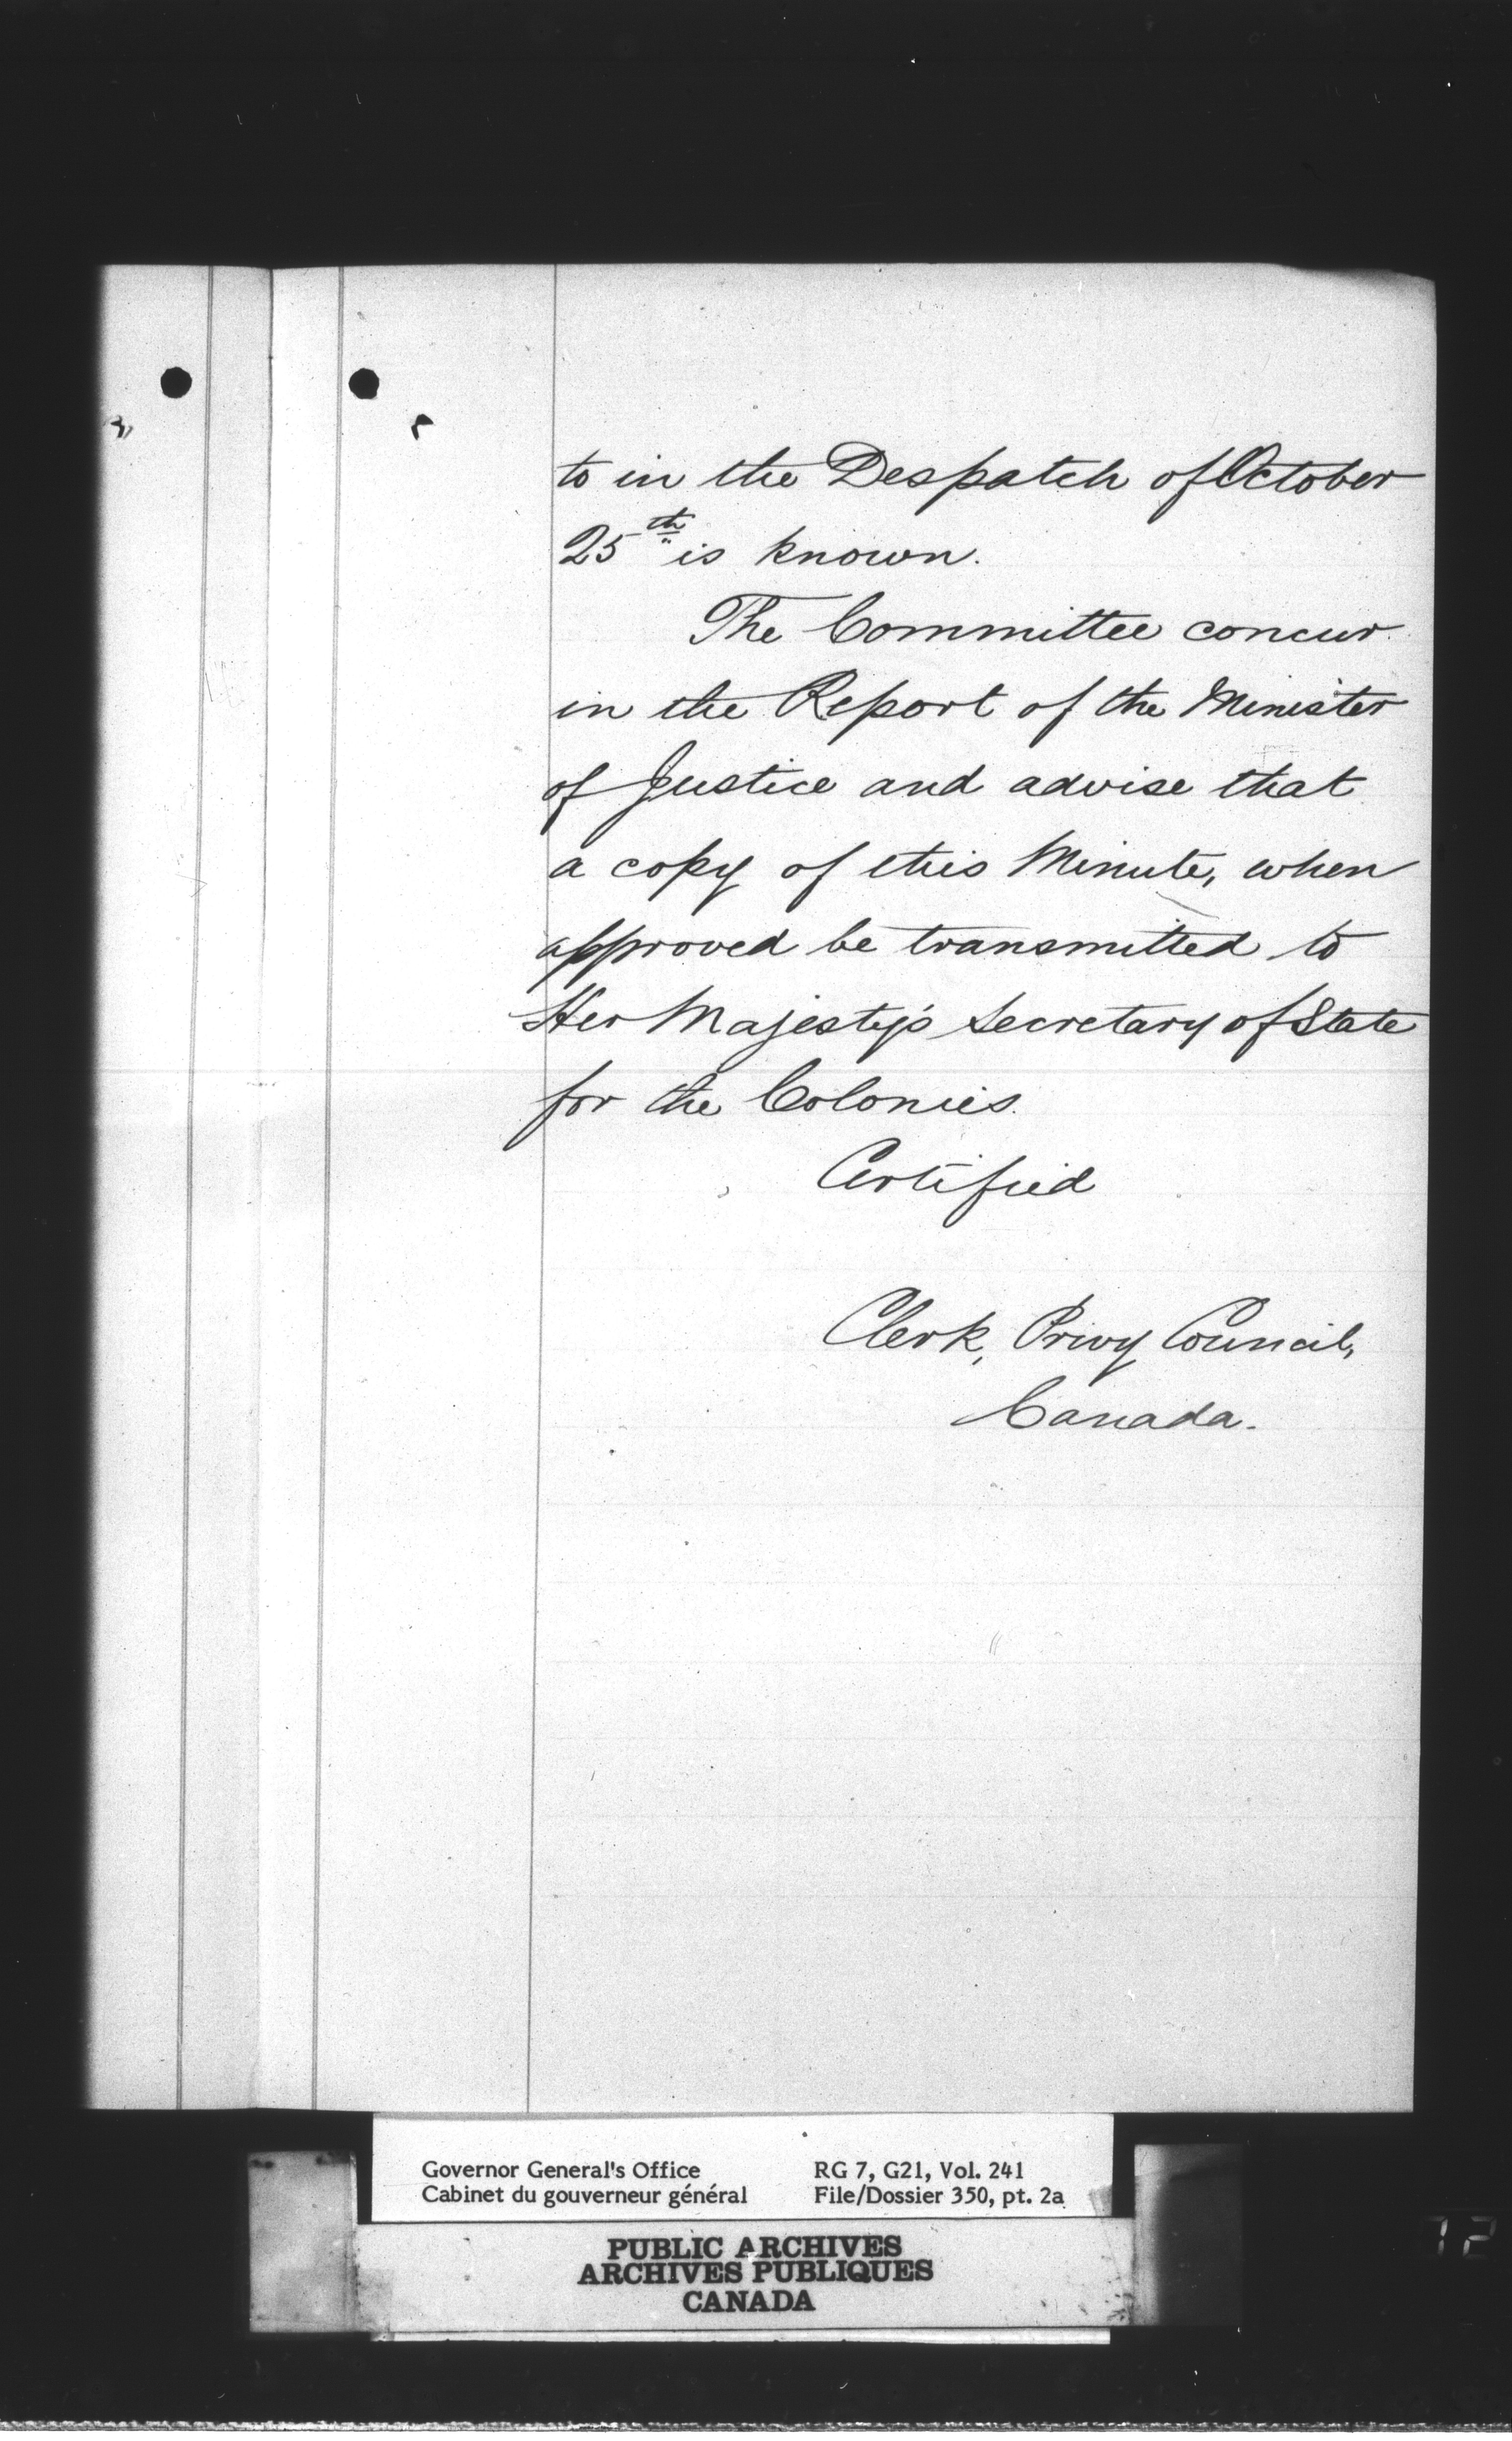 to in the Despatch of October
25th is known.
The Committee concur
in the Report of the Minister
of Justice and advise that
a copy of this Minute, when
approved be transmitted to
Her Majesty's Secretary of State
for the Colonies.
Certified
Clerk, Privy Council,
Canada.
Governor General's Office
Cabinet du gouverneur général
RG 7, G21, Vol. 241
File/Dossier 350, pt. 2a
PUBLIC ARCHIVES
ARCHIVES PUBLIQUES
CANADA